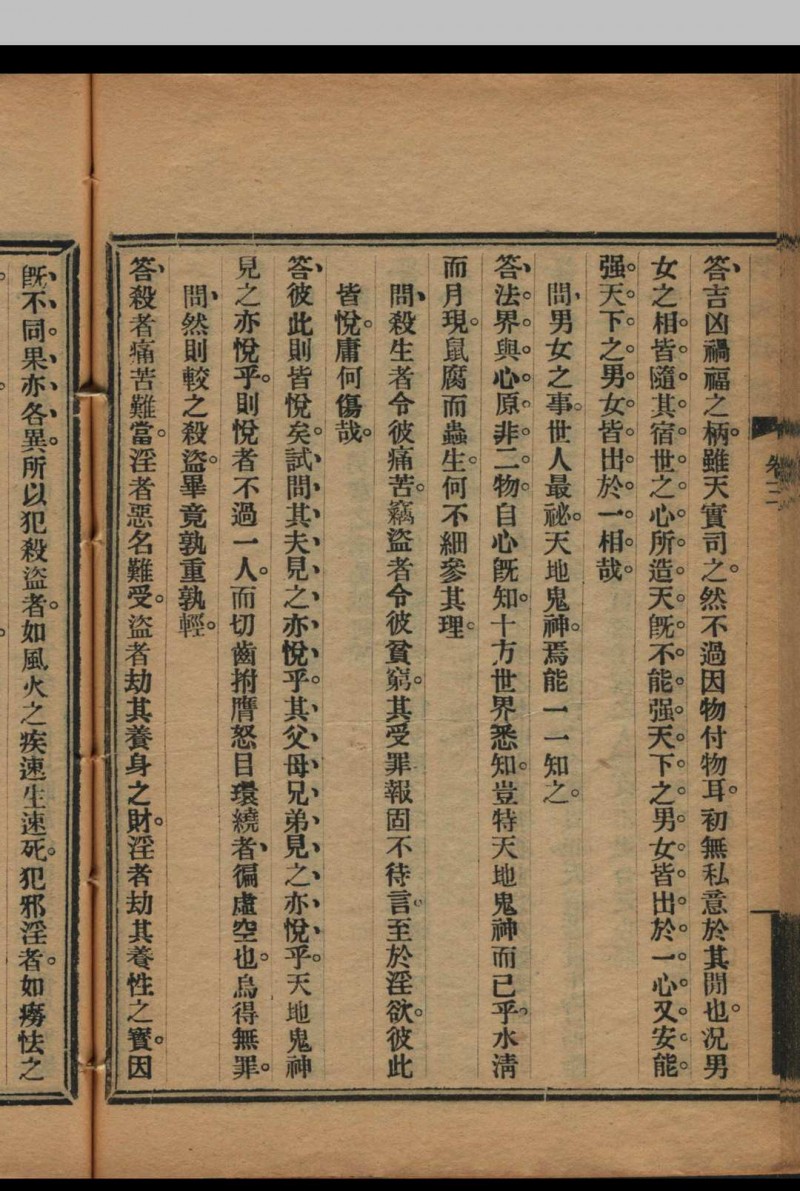 卷三
答吉凶禍福之柄。雖天實司之。然不過因物付物耳。初無私意於其閒也。况男
女之相。皆隨其宿世之心所造。天旣不能强天下之男女皆出於一心。又安能
强天下之男女皆出於一相哉。
問男女之事。世人最祕。天地鬼神。焉能一一知之。
答法界與心。原非二物。自心旣知。十方世界悉知。豈特天地鬼神而已乎。水淸
而月現。鼠腐而蟲生。何不細參其理。
問殺生者令彼痛苦。竊盜者令彼貧窮。其受罪報固不待言。至於淫欲。彼此
皆悅。庸何傷哉。
答彼此則皆悅矣。試問其夫見之亦悅乎。其父母兄弟見之亦悅乎。天地鬼神
見之亦悅乎。則悅者不過一人。而切齒拊膺怒目環繞者、徧虛空也。烏得無罪。
問然則較之殺盜。畢竟孰重孰輕。
答殺者痛苦難當。淫者惡名難受。盜者劫其養身之財。淫者劫其養性之寶。因
旣不同。果亦各異。所以犯殺盜者。如風火之疾速生速死。犯邪淫者。如癆怯之